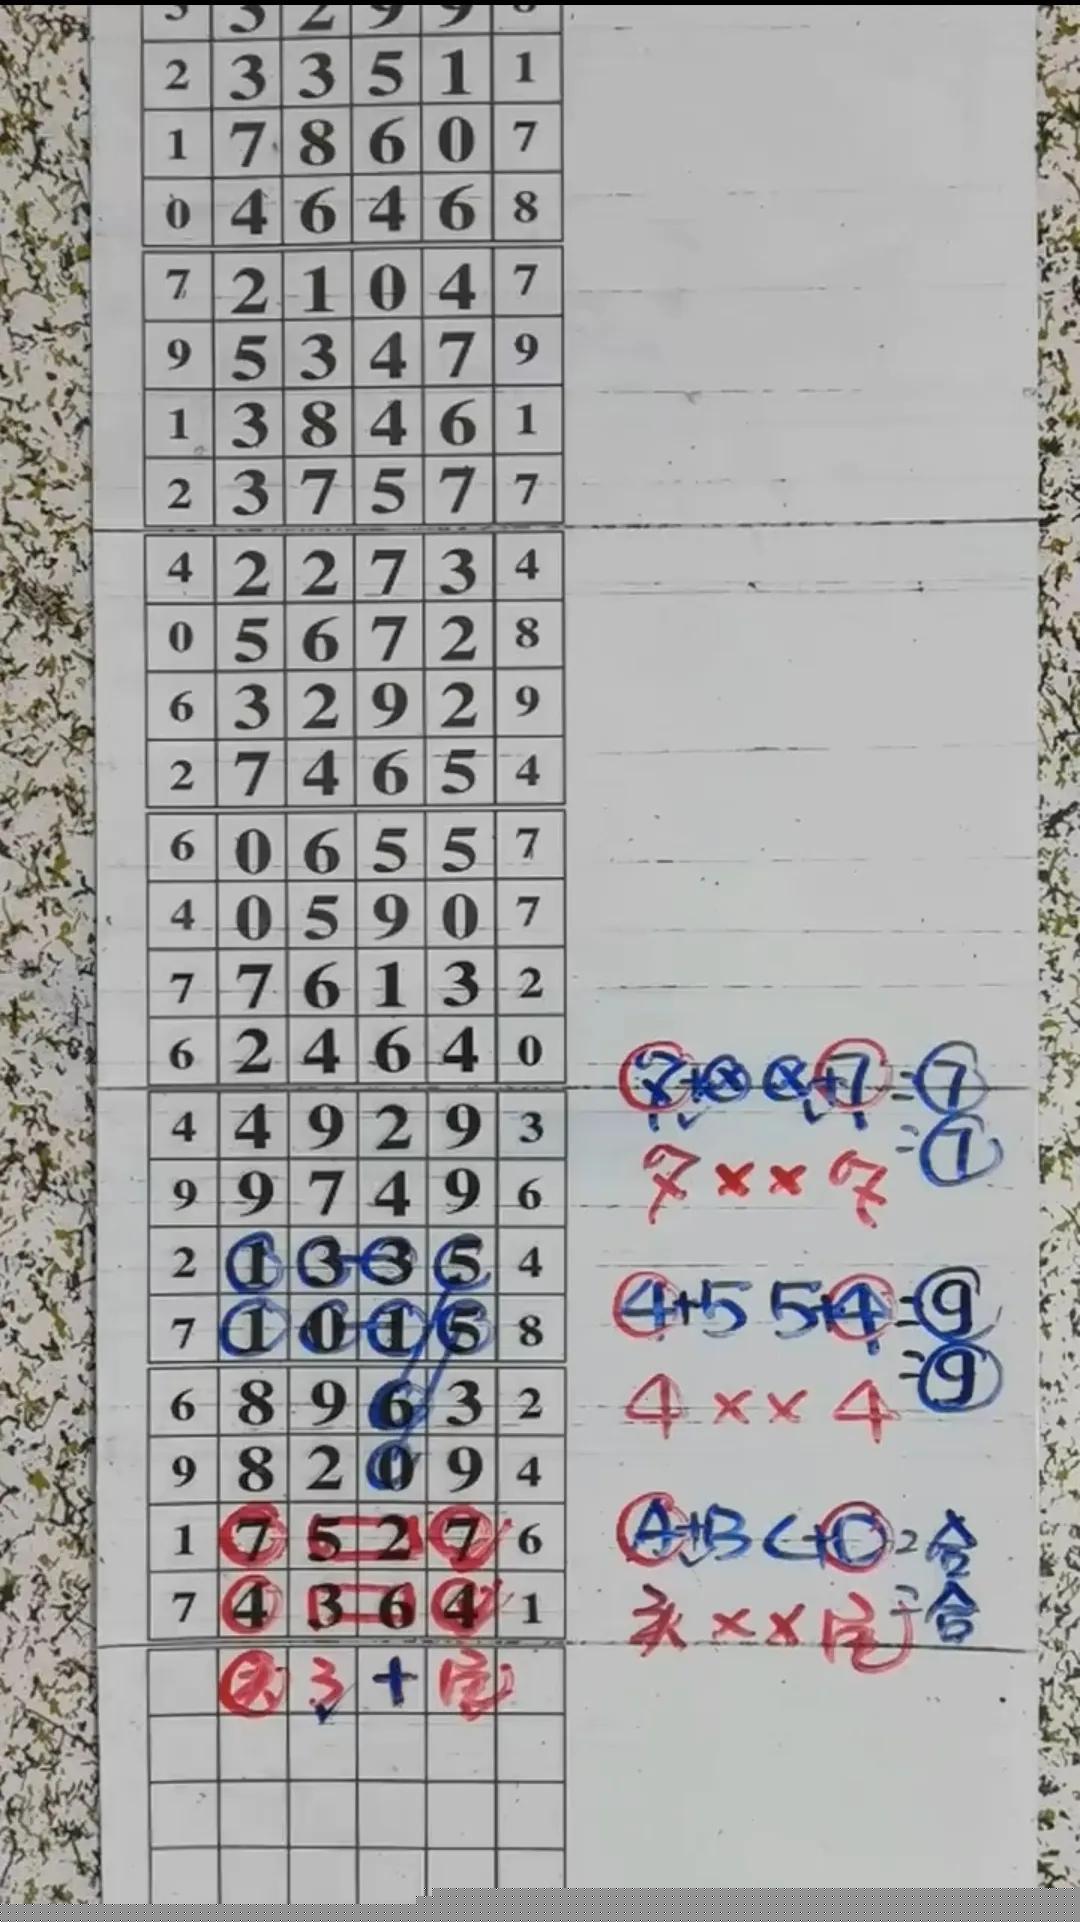 3 3 2 9 9
2 3 3 5 1 1
1 7 8 6 0 7
0 4 6 4 6 8
7 2 1 0 4 7
9 5 3 4 7 9
1 3 8 4 6 1
2 3 7 5 7 7
4 2 2 7 3 4
0 5 6 7 2 8
6 3 2 9 2 9
2 7 4 6 5 4
6 0 6 5 5 7
4 0 5 9 0 7
7 7 6 1 3 2
6 2 4 6 4 0
4 4 9 2 9 3
9 9 7 4 9 6
2 1 3 3 5 4
7 1 0 1 5 8
6 8 9 6 3 2
9 8 2 0 9 4
1 7 5 2 7 6
7 4 3 6 4 1
3 +
=7
=
7 × × 7
4+5 5+4 =9
=9
4 × × 4
A+B C+D = 合
头 × × 尾 = 合